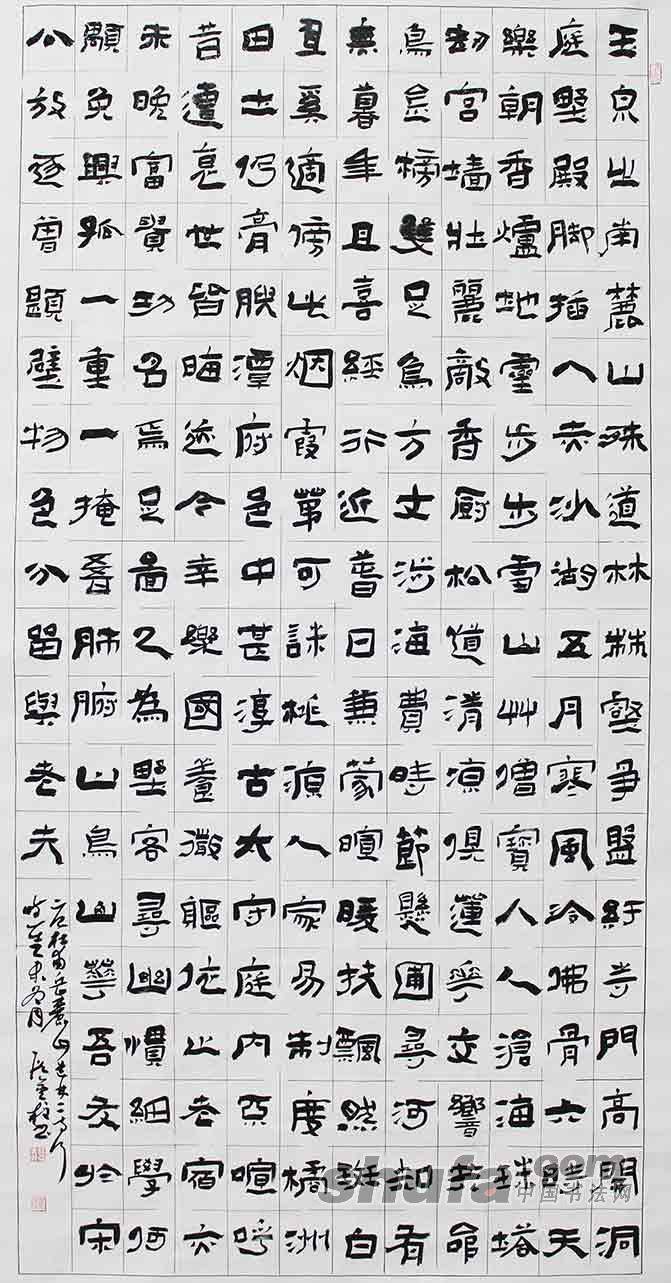 玉泉之南麓山殊道林林壑爭盤紆寺門高開洞
庭野殿脚插入赤沙湖五月寒風冷佛骨六時天
樂朝香爐地靈步步雪山艸僧寶人人滄海珠塔
劫宮墻壯麗敵香廚松道清涼俱蓮華交響共命
鳥金榜雙足烏方丈涉海費時節懸圃尋河知有
無暮年且喜經行近春日兼蒙暄暖扶飄然斑白
且奚適傍此烟霞茅可誅桃源人家易制度橘洲
田土仍膏腴潭府邑中甚淳古大守庭內不喧呼
昔遭哀世皆晦迹今幸樂國養微軀依止老宿亦
未晚富貴功名焉足圖久為野客尋幽慣細學何
顒免興孤一重一掩吾肺腑山鳥山華吾友於宋
公放逐曾題壁物色分留與老夫
杜甫岳麓山道林二寺行
shufa.com
中国书法网